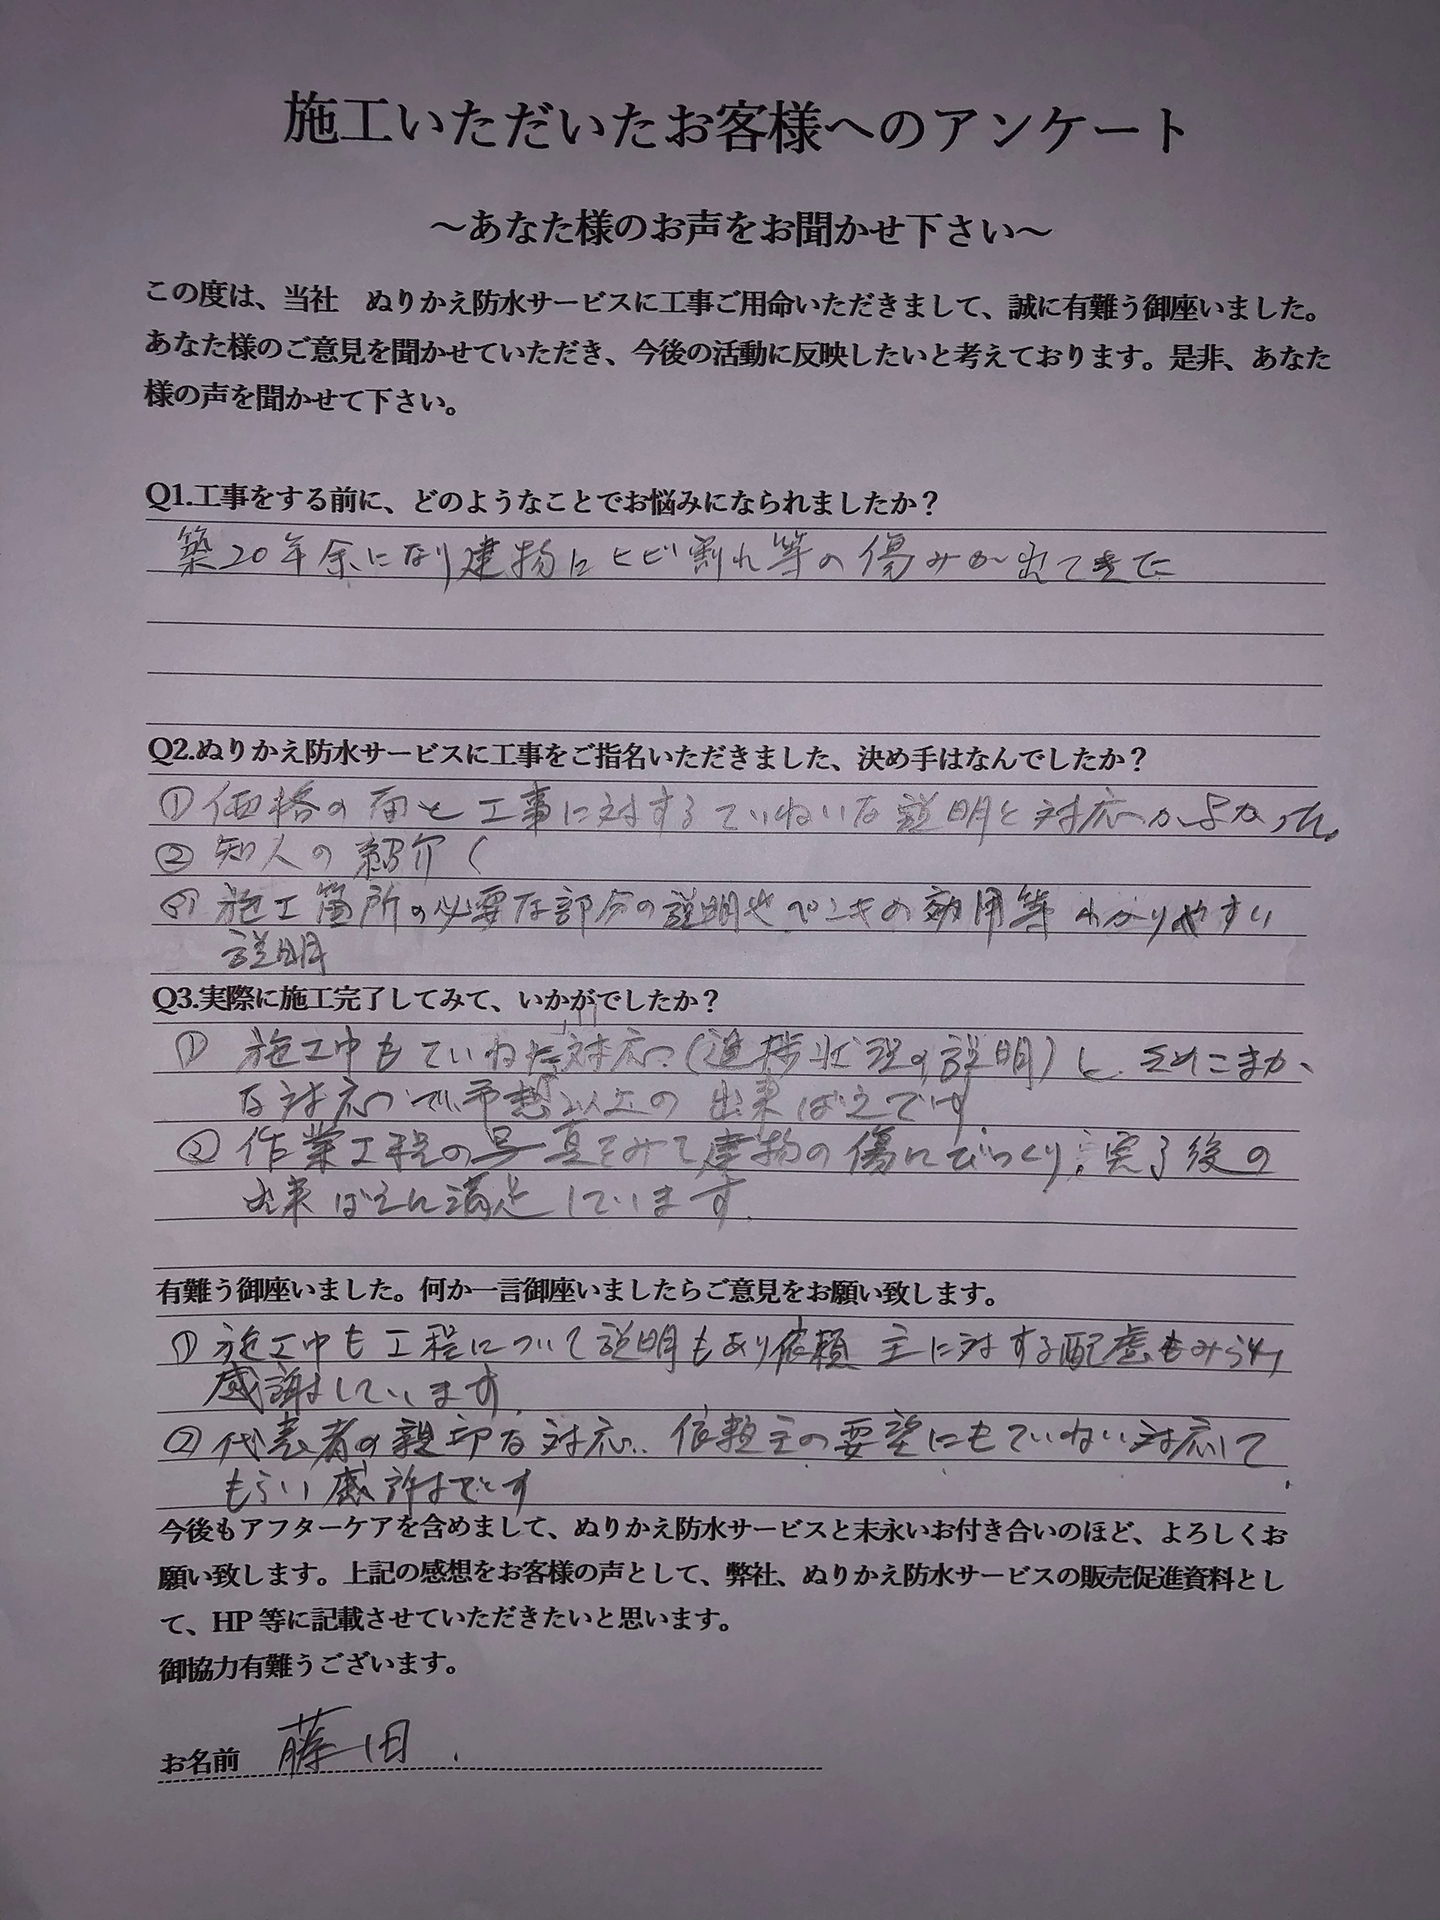 施工いただいたお客様へのアンケート
～あなた様のお声をお聞かせ下さい～
この度は、当社　ぬりかえ防水サービスに工事ご用命いただきまして、誠に有難う御座いました。
あなた様のご意見を聞かせていただき、今後の活動に反映したいと考えております。是非、あなた
様の声を聞かせて下さい。
Q1.工事をする前に、どのようなことでお悩みになられましたか？
築20年余になり建物にヒビ割れ等の傷みが出てきた
Q2.ぬりかえ防水サービスに工事をご指名いただきました、決め手はなんでしたか？
①価格の面と工事に対するていねいな説明と対応がよかった。
②知人の紹介
③施工箇所の必要な部分の説明やペンキの効用等わかりやすい
説明
Q3.実際に施工完了してみて、いかがでしたか？
① 施工中もていねいな対応（進捗状況の説明）と、きめこまか
な対応で予想以上の出来ばえです
② 作業工程の写真をみて建物の傷にびっくり、完了後の
出来ばえに満足しています。
有難う御座いました。何か一言御座いましたらご意見をお願い致します。
①施工中も工程について説明もあり依頼主に対する配慮もみられ
感謝しています。
②代表者の親切な対応、依頼主の要望にもていねい対応して
もらい感謝です
今後もアフターケアを含めまして、ぬりかえ防水サービスと末永いお付き合いのほど、よろしくお
願い致します。上記の感想をお客様の声として、弊社、ぬりかえ防水サービスの販売促進資料とし
て、HP 等に記載させていただきたいと思います。
御協力有難うございます。
お名前　藤田